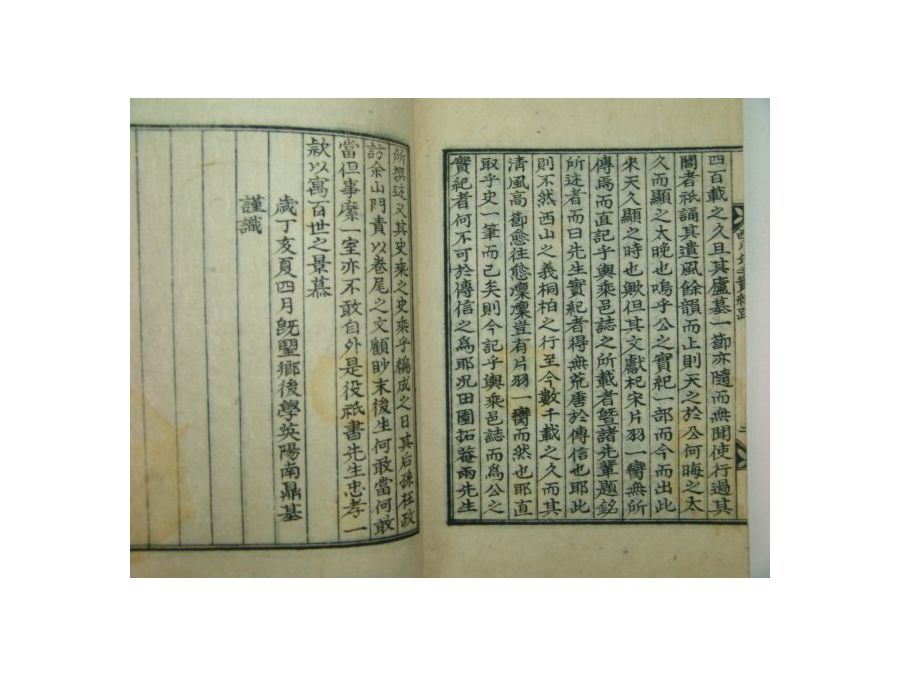 四百載之久且其廬墓一節亦隨而無聞使行過其
閭者祇誦其遺風餘韻而止則天之於公何晦之太
久而顯之太晚也嗚乎公之實紀一部而今而出此
來天久顯之時也歟但其文獻杞宋片羽一臠無所
傳焉而直記乎輿乘邑誌之所載者曁諸先輩題銘
所述者而曰先生實紀者得無荒唐於傳信也耶此
則不然西山之義桐柏之行至今數千載之久而其
清風高節愈往愈凜凜豈有片羽一臠而然也耶直
取乎史一筆而已矣則今記乎輿乘邑誌而爲公之
實紀者何不可於傳信之爲耶況田園拓菴兩先生
所撰述又其史乘之史乘乎編成之日其后孫在政
訪余山門責以卷尾之文顧眇末後生何敢當何敢
當但事縻一室亦不敢自外是役祇書先生忠孝一
款以寓百世之景慕
歲丁亥夏四月旣望鄉後學英陽南鼎基
謹識
先生實紀跋
二